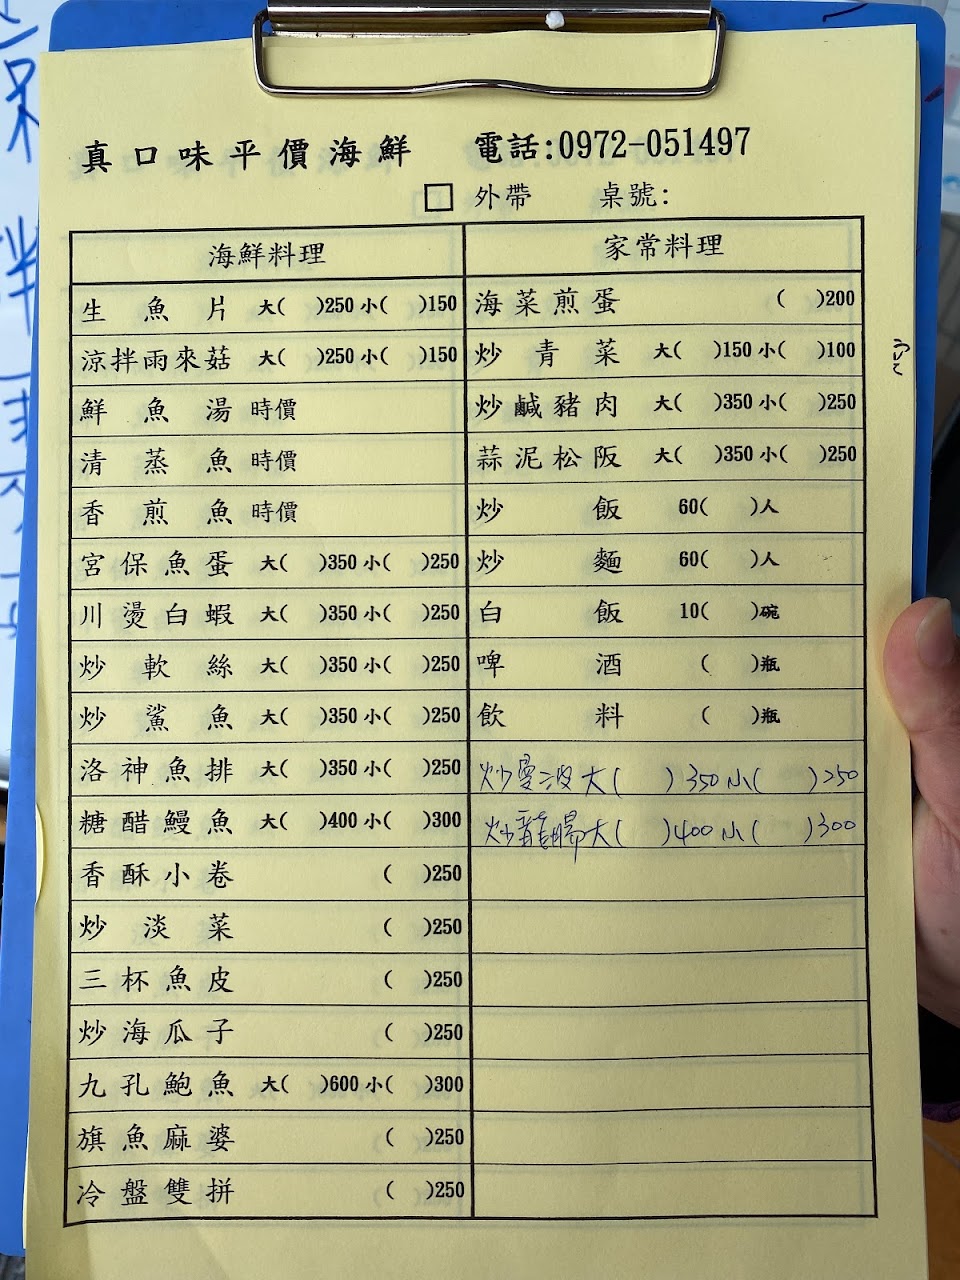 真口味平價海鮮 電話:0972-051497
□ 外帶 桌號:
海鮮料理
生魚片 大( )250 小( )150
涼拌雨來菇 大( )250 小( )150
鮮魚湯 時價
清蒸魚 時價
香煎魚 時價
宮保魚蛋 大( )350 小( )250
川燙白蝦 大( )350 小( )250
炒軟絲 大( )350 小( )250
炒鯊魚 大( )350 小( )250
洛神魚排 大( )350 小( )250
糖醋鰻魚 大( )400 小( )300
香酥小卷 ( )250
炒淡菜 ( )250
三杯魚皮 ( )250
炒海瓜子 ( )250
九孔鮑魚 大( )600 小( )300
旗魚麻婆 ( )250
冷盤雙拼 ( )250
家常料理
海菜煎蛋 ( )200
炒青菜 大( )150 小( )100
炒鹹豬肉 大( )350 小( )250
蒜泥松阪 大( )350 小( )250
炒飯 60( )人
炒麵 60( )人
白飯 10( )碗
啤酒 ( )瓶
飲料 ( )瓶
炒曼波 大( )350 小( )250
炒龍腸 大( )400 小( )300